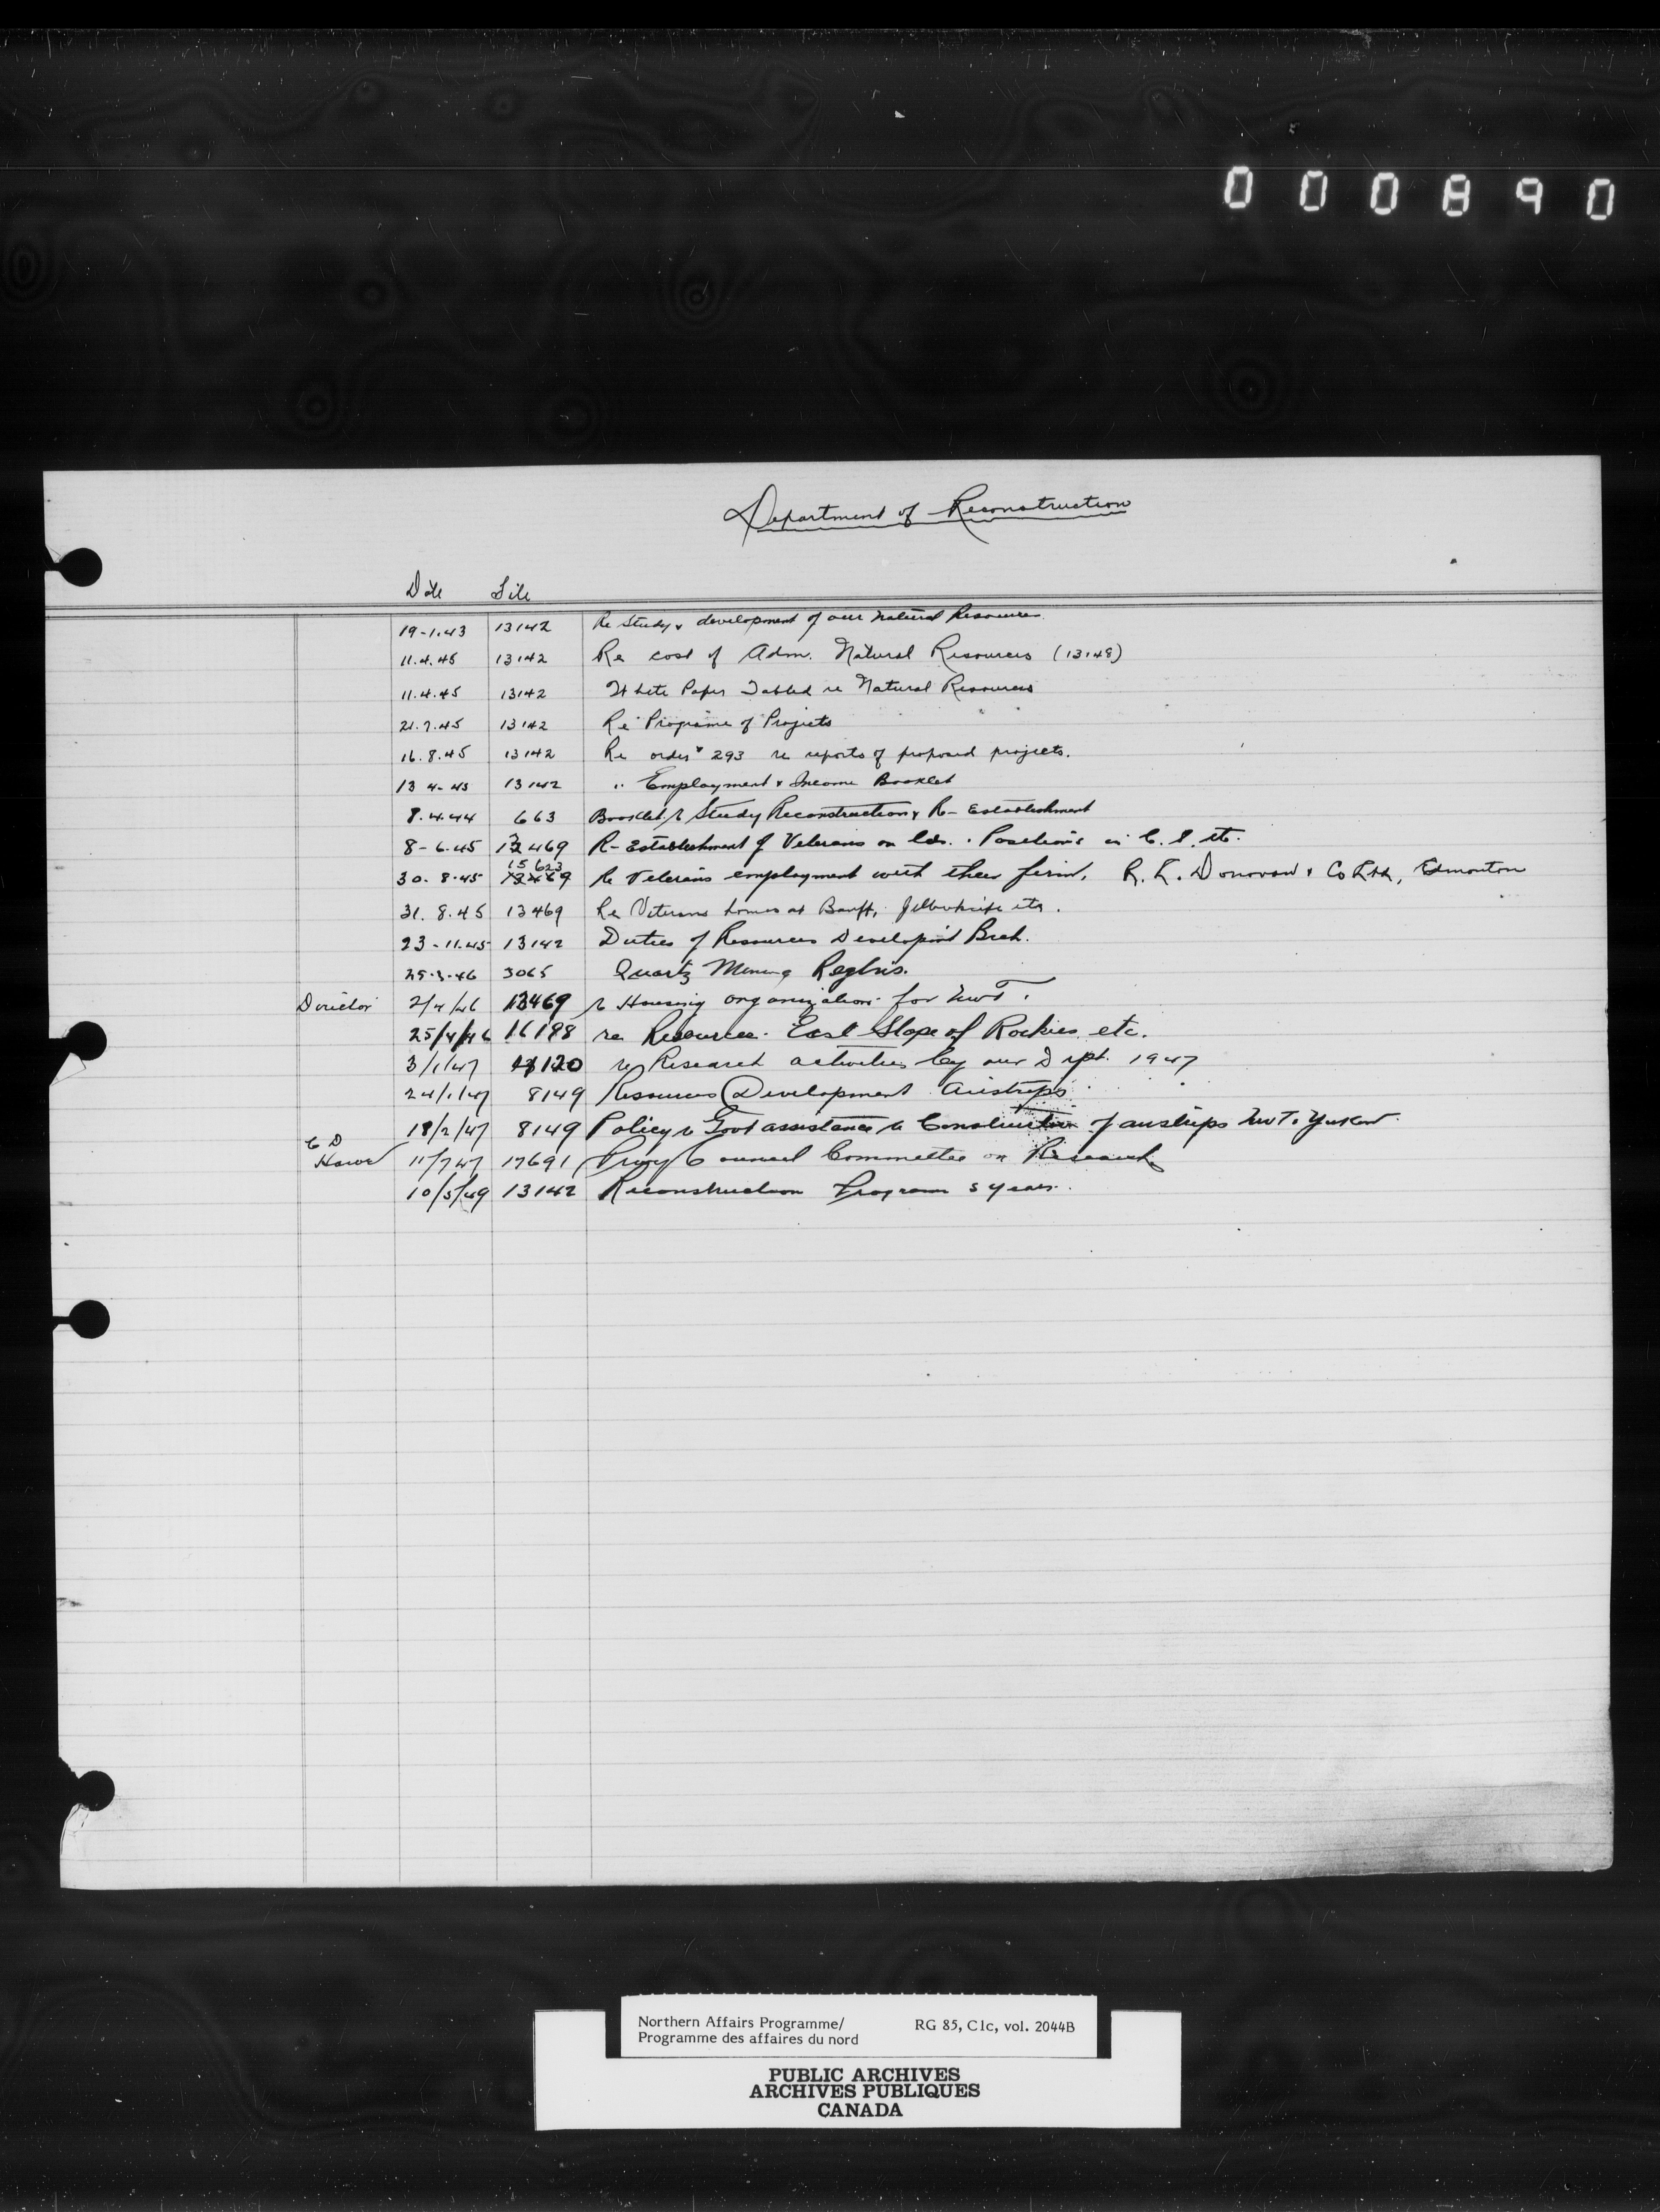 000890
Department of Reconstruction
Date File
19-1.43 13142 Re Study & development of our Natural Resources
11.4.45 13142 Re cost of Adm. Natural Resources (13148)
11.4.45 13142 White Paper Tabled re Natural Resources
21.7.45 13142 Re Programe of Projects
16.8.45 13142 Re order # 293 re reports of proposed projects.
13 4-45 13142 " Employment & Income Booklet
8.4.44 663 Booklet re Study Reconstruction & Re-Establishment
8-6.45 13469 Re-Establishment of Veterans on lds. Positions in C.S. etc.
15623
30.8.45 13469 Re Veterans employment with their firm. R.L. Donovan & Co Ltd, Edmonton
31.8.45 13469 Re Veterans homes at Banff, Yellowknife etc.
23-11.45 13142 Duties of Resources Developmt Brch.
25.3.46 3065 Quartz Mining Reglns.
Director 2/4/46 13469 re Housing organization for NWT.
25/4/46 16198 re Resources East Slope of Rockies etc.
3/1/47 re Research activities by our Dept. 1947
24/1/47 8149 Resources Development Airstrips
18/2/47 8149 Policy re Govt assistance re Construction of airstrips NWT. Yukon
C D
Howe 11/7/47 17691 Privy Council Committee on Research
10/5/49 13142 Reconstruction Program 5 years.
Northern Affairs Programme/ RG 85, C1c, vol. 2044B
Programme des affaires du nord
PUBLIC ARCHIVES
ARCHIVES PUBLIQUES
CANADA